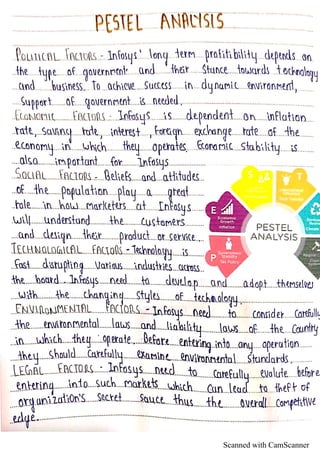 PESTEL ANALYSIS
POLITICAL FACTORS - Infosys' long term profitibility depends on
the type of government and their stance towards technology
and business. To achieve success in dynamic environment,
Support of government is needed.
ECONOMIC FACTORS - Infosys is dependent on inflation
rate, saving rate, interest, Foreign exchange rate of the
economy in which they operates. Economic stability is
also important for Infosys
SOCIAL FACTORS - Beliefs and attitudes
of the population play a great
role in how marketers at Infosys
will understand the customers
and design their product or service.
E
Economic
Growth
Inflation
S
T
PESTEL
ANALYSIS
P
Government
Stability
Tax Policy
TECHNOLOGICAL FACTORS - Technology is
fast disrupting various industries across
the board. Infosys need to develop and adopt themselves
with the changing styles of technology.
ENVIRONMENTAL FACTORS - Infosys need to consider carefully
the environmental laws and liability laws of the Country
in which they operate. Before entering into any operation
they should carefully examine environmental standards.
LEGAL FACTORS - Infosys need to carefully evalute before
entering into such markets which can lead to theft of
organization's secret sauce thus the overall competitive
edge.
Scanned with CamScanner